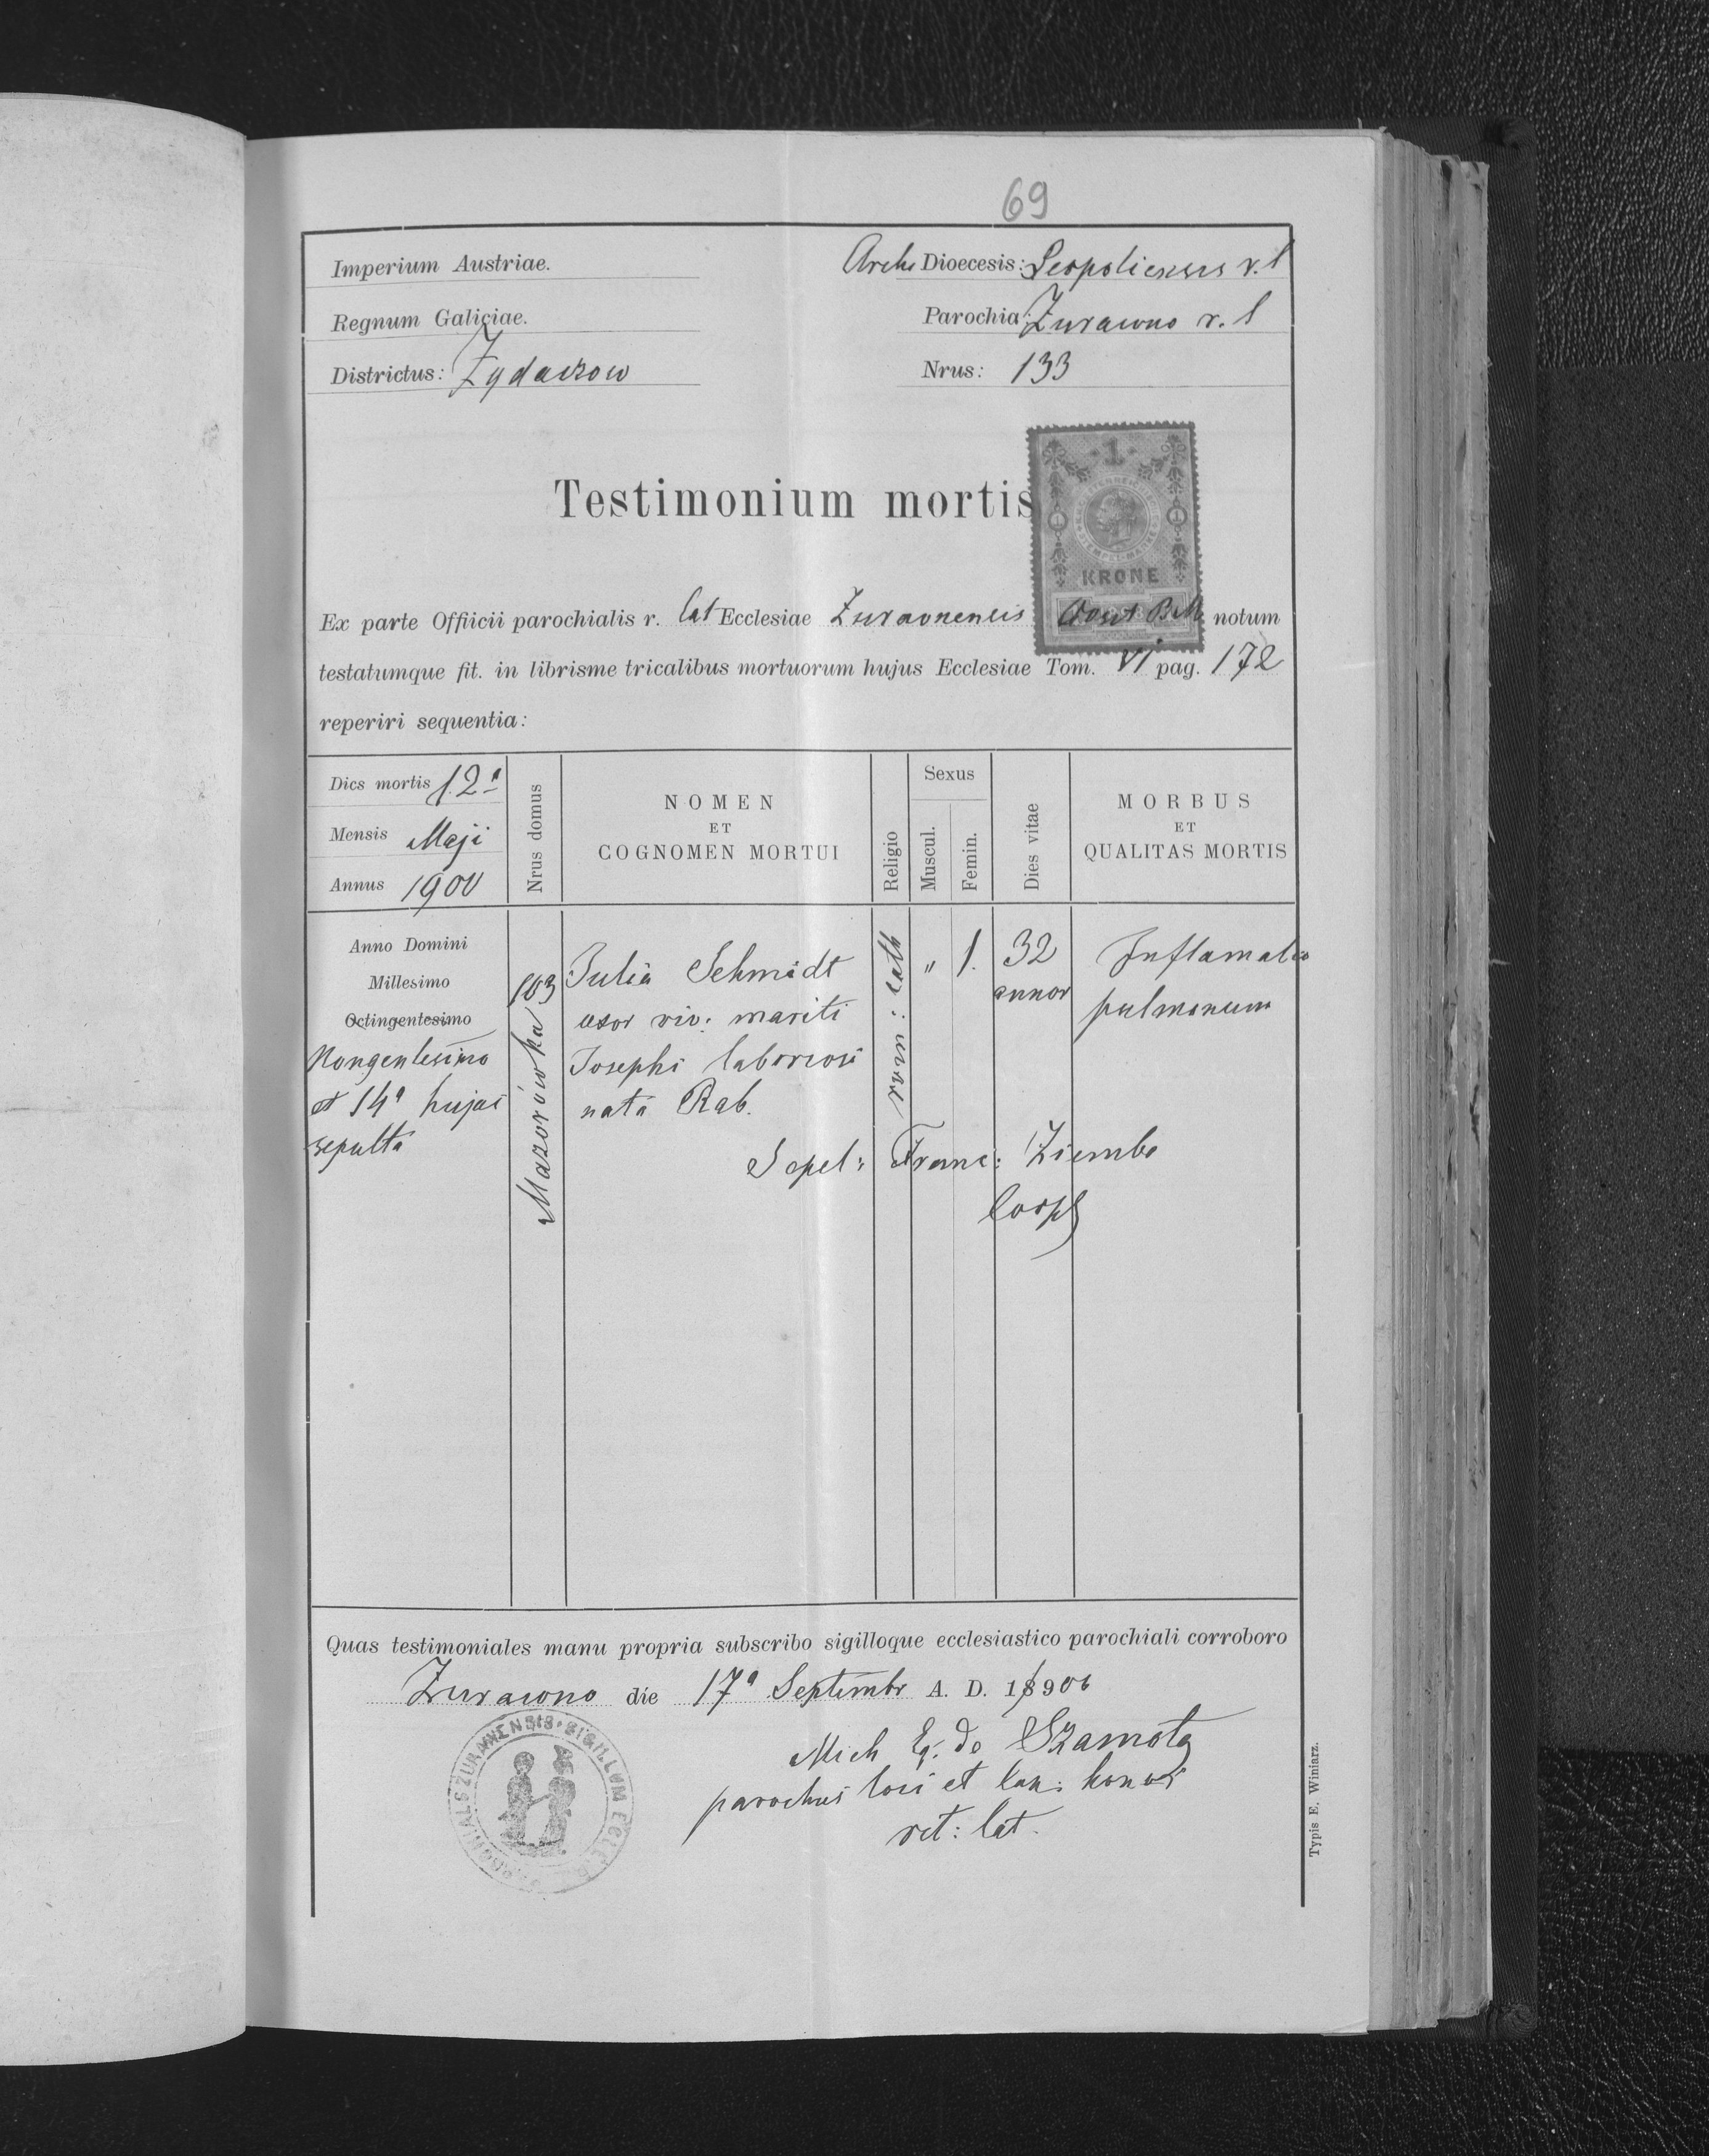 69
Imperium Austriae.
Archi Dioecesis: Leopoliensis r. l
Regnum Galiciae.
Parochia: Żurawno r. l
Districtus: Żydaczow
Nrus: 133
Testimonium mortis
1
KRONE
Ex parte Offiicii parochialis r. lat Ecclesiae Żuravnensis B M notum
testatumque fit. in librisme tricalibus mortuorum hujus Ecclesiae Tom. VI pag. 172
reperiri sequentia:
Dics mortis 12ª
Mensis Maji
Annus 1900
Nrus domus
NOMEN
ET
COGNOMEN MORTUI
Religio
Sexus
Muscul.
Femin.
Dies vitae
MORBUS
ET
QUALITAS MORTIS
Anno Domini
Millesimo
Octingentesimo
Nongentesimo
et 14ª hujus
sepulta
103
Mazorówka
Julia Schmidt
uxor viv: mariti
Josephi laboriosi
nata Rab.
rom: cath
" 1.
32
annor
Inflamatio
pulmonum
Sepel: Franc: Ziemba
Coops
Quas testimoniales manu propria subscribo sigilloque ecclesiastico parochiali corroboro
Żurawno die 17ª Septembr A. D. 18906
Mich Eq. de Szamota
parochus loci et can: honor
rit: lat.
SIGILLUM ECCLE
Typis E. Winiarz.